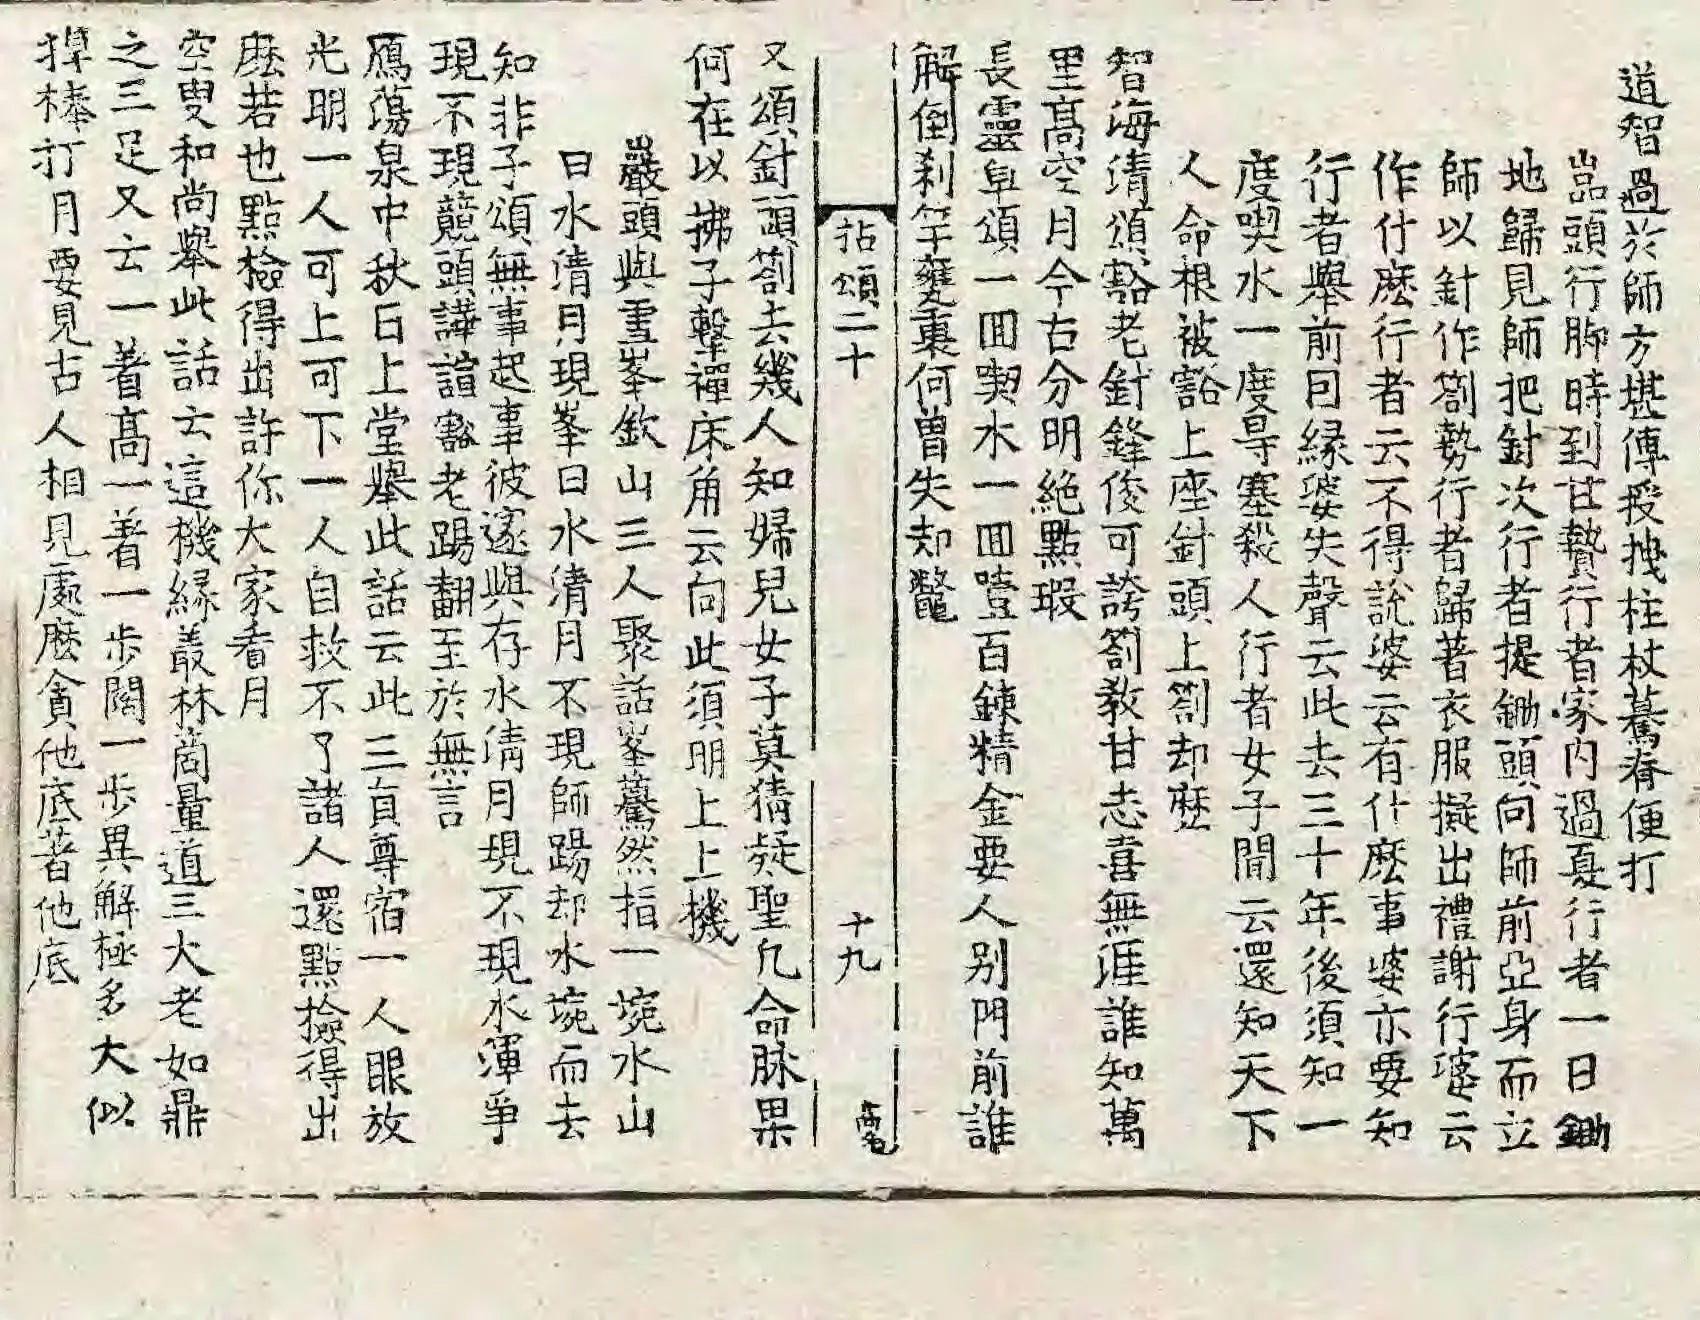 道智過於師方堪傳授拽柱杖驀脊便打
嵓頭行脚時到甘贄行者家內過夏行者一日鋤
地歸見師把針次行者提鋤頭向師前亞身而立
師以針作劄勢行者歸著衣服擬出禮謝行婆云
作什麽行者云不得說婆云有什麽事婆亦要知
行者舉前因緣婆失聲云此去三十年後須知一
度喫水一度㝵塞殺人行者女子聞云還知天下
人命根被豁上座針頭上劄却麽
智海清頌豁老針鋒俊可誇劄敎甘志喜無涯誰知萬
里高空月今古分明絶點瑕
長靈卓頌一回喫水一回噎百鍊精金要人別門前誰
解倒刹竿甕裏何曾失却鼈
拈頌二十
十九
又頌針頭劄去幾人知婦兒女子莫猜疑聖凡命脉果
何在以拂子擊禪床角云向此須明上上機
巖頭與雪峯欽山三人聚話峯驀然指一埦水山
曰水淸月現峯曰水淸月不現師踢却水埦而去
知非子頌無事起事彼遂與存水淸月現不現水渾爭
現不現競頭譁諠豁老踢翻至於無言
鴈蕩泉中秋日上堂舉此話云此三員尊宿一人眼放
光明一人可上可下一人自救不了諸人還點檢得出
麽若也點檢得出許你大家看月
空叟和尚舉此話云這機緣叢林啇量道三大老如鼎
之三足又云一著高一著一步闊一步異解極多大似
掉棒打月要見古人相見處麽貪他底著他底